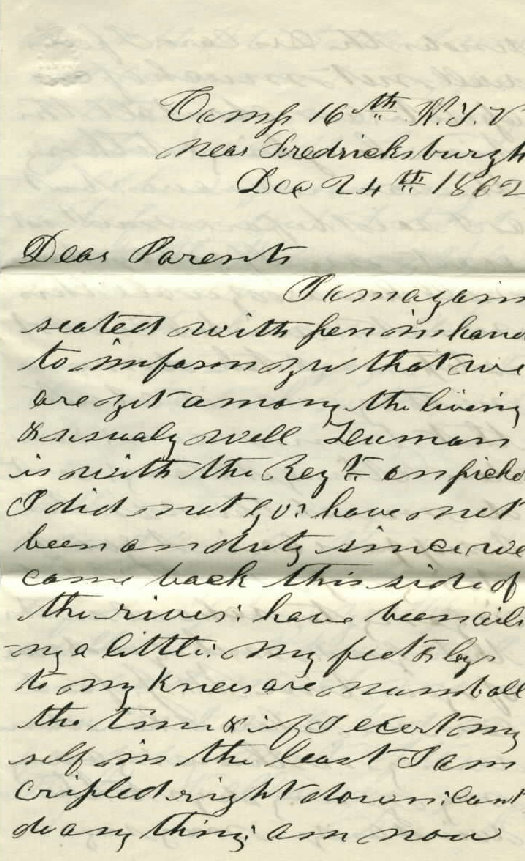 Camp 16th N.Y.V
near Fredricksburgh
Dec 24th 1862
Dear Parents
I am again
seated with pen in hand
to inform you that we
are yet among the living
& usualy well Leuman
is with the Regt. on picke
I did not go: have not
been on duty since we
came back this side of
the river: have been aili
ng a little: my feet & legs
to my knees are numb all
the time & if I exert my
self in the least I am
cripled right down: cant
do any thing: am now